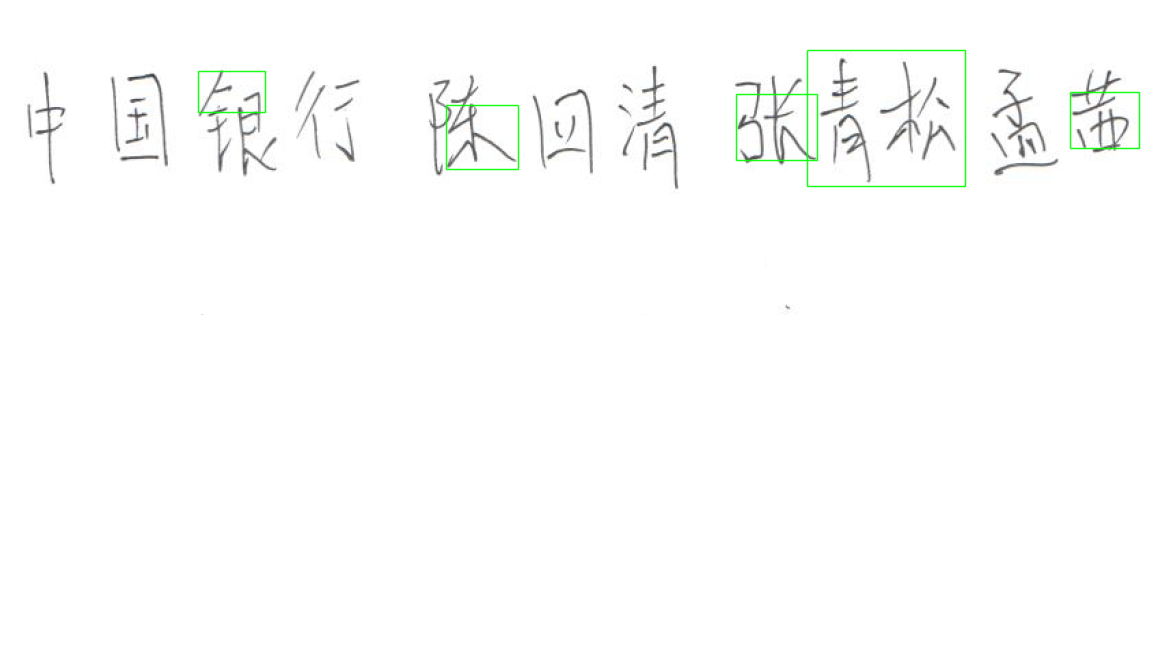 中国银行 陈四清 张青松 孟茜